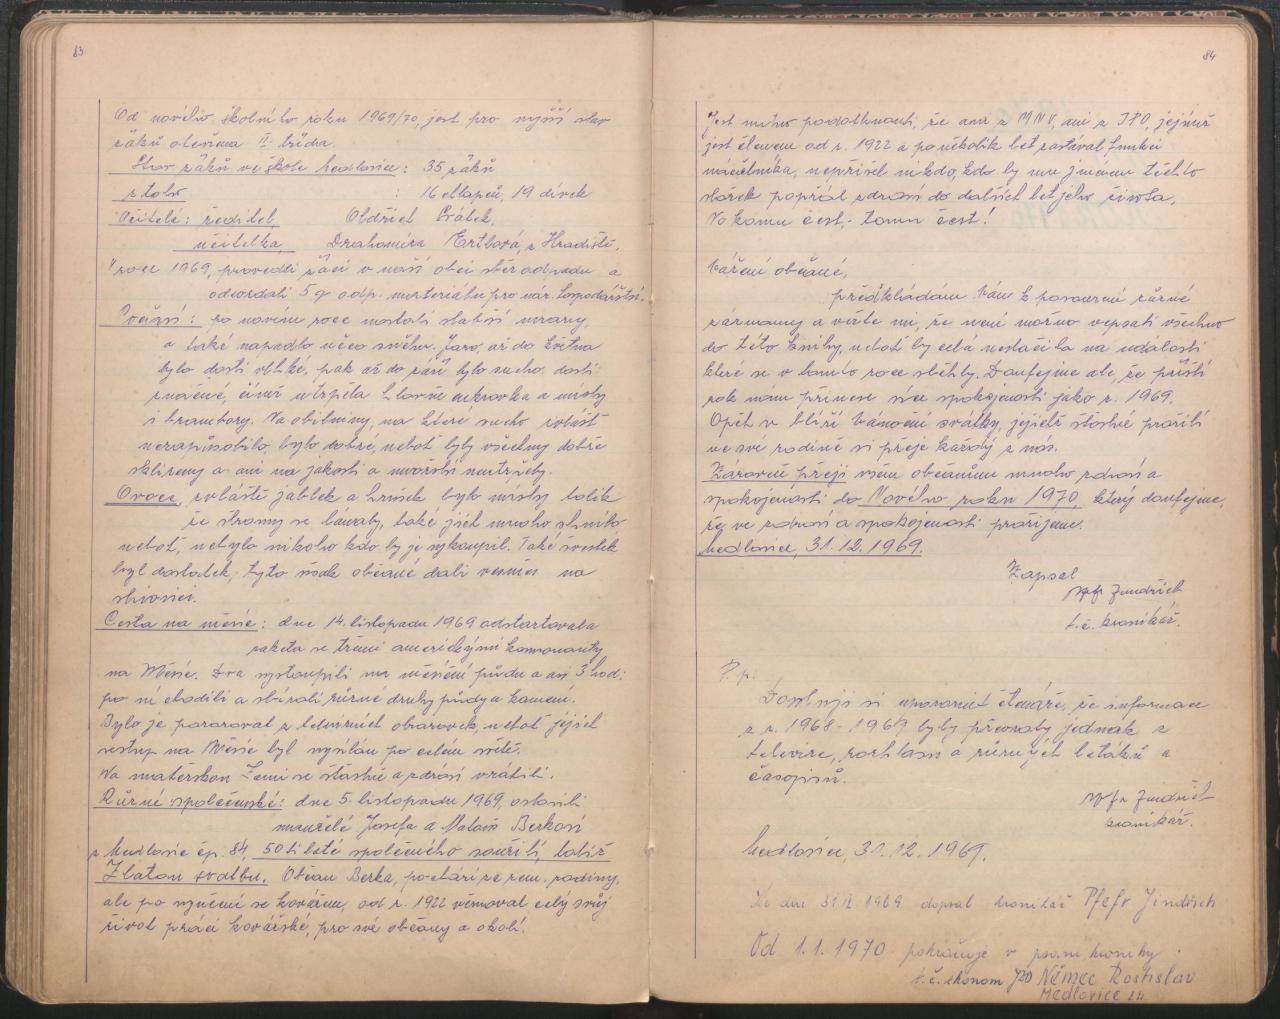 83
Od nového školního roku 1969/70, jest pro nižší stav
žáků otevřena II. třída.
Stav žáků ve škole Medlovice: 35 žáků
z toho : 16 chlapců, 19 dívek
Učitelé: ředitel, Oldřich
učitelka, Drahomíra Ertlová, z Hradiště.
V roce 1969, provedli žáci v naší obci sběr odpadu a
odevzdali 5 q odp. materiálu pro nár. hospodářství.
Počasí: po novém roce nastali slabší mrazy,
a také napadlo něco sněhu. Jaro, až do května
bylo dosti vlhké, pak až do září bylo sucho, dosti
značné, čímž utrpěla hlavně cukrovka a místy
i brambory. Na obilniny, na které sucho zvlášť
nezapůsobilo, bylo dobré, neboť byly všechny dobře
sklizeny a ani na jakosti a množství neutrpěly.
Ovoce, zvláště jablek a hrušek bylo místy tolik
že stromy se lámaly, také jich mnoho shnilo
neboť, nebylo nikoho kdo by je vykoupil. Také švestek
byl dostatek, tyto však občané dali na
slivovici.
Cesta na měsíc: dne 14. listopadu 1969 odstartovala
raketa se třemi americkými kosmonauty
na Měsíc. Dva vystoupili na měsíční půdu a asi 3 hod:
po ní chodili a sbírali různé druhy půdy a kamení.
Bylo je pozorovat z televizních obrazovek, neboť jejich
sestup na Měsíc byl vysílán po celém světě.
Na mateřskou Zemi se šťastně a zdraví vrátili.
Různé společenské: dne 5. listopadu 1969, oslavili
manželé Josefa a Matouš Berkovi
z Medlovic čp. 84, 50tileté společného soužití, totiž
Zlatou svatbu. Občan Berka, pochází ze zem. rodiny,
ale po vyučení se kovářem, od r. 1922 věnoval celý svůj
život práci kovářské, pro své občany a okolí.
84
Jest nutno podotknouti, že ani z MNV, ani z JPO, jejímž
jest členem od r. 1922 a po několik let zastával funkci
náčelníka, nepřišel nikdo, kdo by mu jménem těchto
složek popřál zdraví do dalších let jeho života.
No komu čest,- tomu čest!
Vážení občané,
předkládám Vám k pousouzení různé
záznamy a věřte mi, že není možno vepsati všechno
do této knihy, neboť by celá nestačila na události
které se v tomto roce sběhly. Doufejme ale, že příští
rok nám přinese více spokojenosti jako r. 1969.
Opět v blíží Vánoční svátky, jejichž šťastné prožití
ve své rodině si přeje každý z nás.
Zároveň přeji všem občanům mnoho zdraví a
spokojenosti do Nového roku 1970, který doufejme,
že ve zdraví a spokojenosti prožijeme.
Medlovice, 31.12.1969.
Zapsal
Pfefr Jindřich
t.č. kronikář.
P.p.
Dovoluji si upozornit čtenáře, že informace
z r. 1968-1969 byly převzaty jednak z
televize, rozhlasu a různých letáků a
časopisů.
Pfefr Jindřich
kronikář.
Medlovice, 31.12.1969.
Ke dni 31.12.1969 dopsal kronikář Pfefr Jindřich
Od 1.1.1970 pokračuje v psaní kroniky
t.č. ekonom JZD Němec Rostislav
Medlovice 24